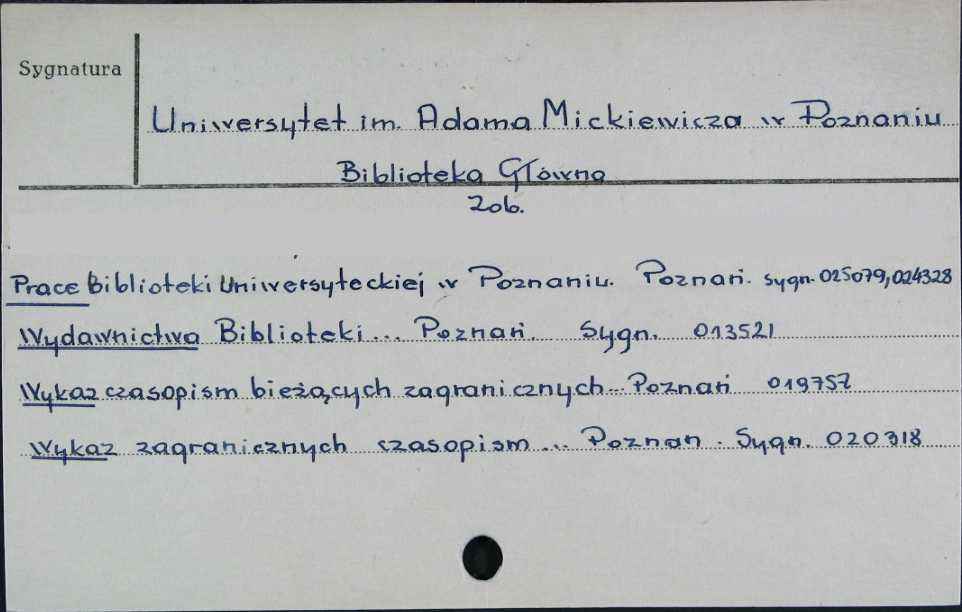 Sygnatura
Uniwersytet im. Adama Mickiewicza w Poznaniu
Biblioteka Główna
Zob.
Prace Biblioteki Uniwersyteckiej w Poznaniu. Poznań. sygn. 025079, 024328
Wydawnictwa Biblioteki... Poznań. Sygn. 013521
Wykaz czasopism bieżących zagranicznych... Poznań 019757
Wykaz zagranicznych czasopism ... Poznan. Sygn. 020318